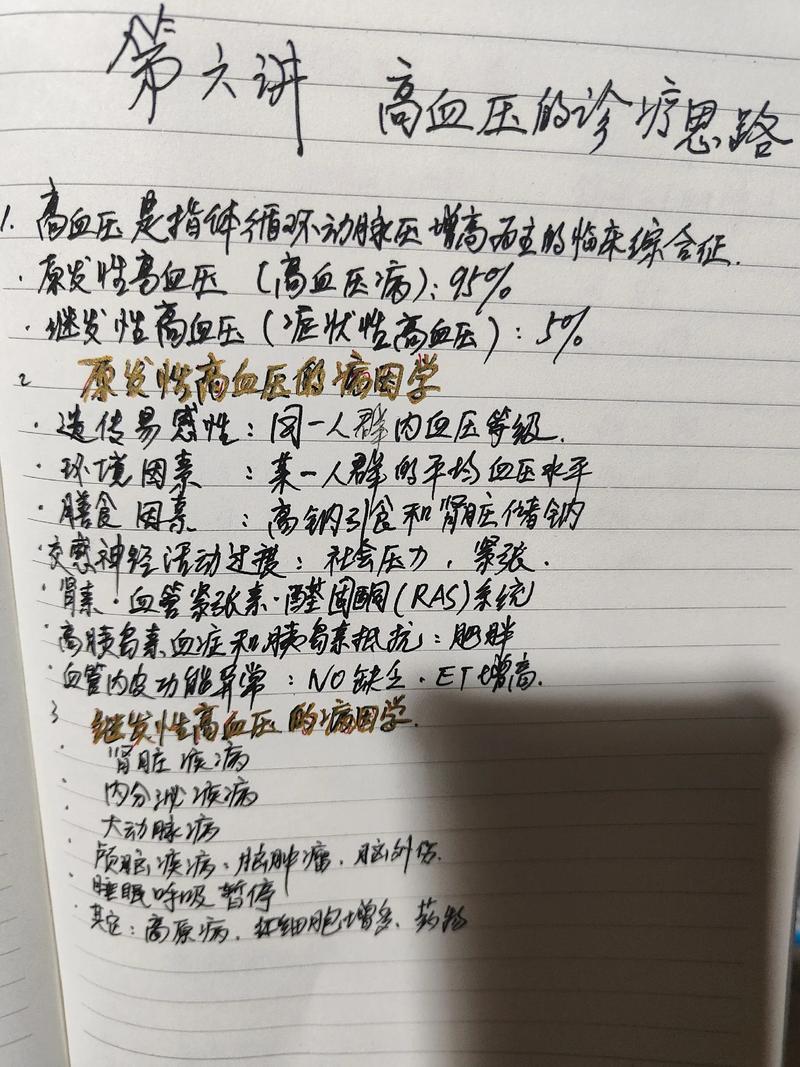 第六讲 高血压的诊疗思路
1. 高血压是指体循环动脉压增高而主的临床综合征.
· 原发性高血压 (高血压病): 95%
· 继发性高血压 (症状性高血压): 5%
2 原发性高血压的病因学
· 遗传易感性: 同一人群内血压等级.
· 环境因素 : 某一人群的平均血压水平
· 膳食因素 : 高钠引食和肾脏储钠
· 交感神经活动过度: 社会压力, 紧张.
· 肾素·血管紧张素·醛固酮(RAS)系统
· 高胰岛素血症和胰岛素抵抗: 肥胖
· 血管内皮功能异常: NO缺乏. ET增高.
3 继发性高血压的病因学.
· 肾脏疾病
· 内分泌疾病
· 大动脉病
· 颅脑疾病: 脑肿瘤. 脑外伤.
· 睡眠呼吸暂停
· 其它: 高原病. 红细胞增多. 药物